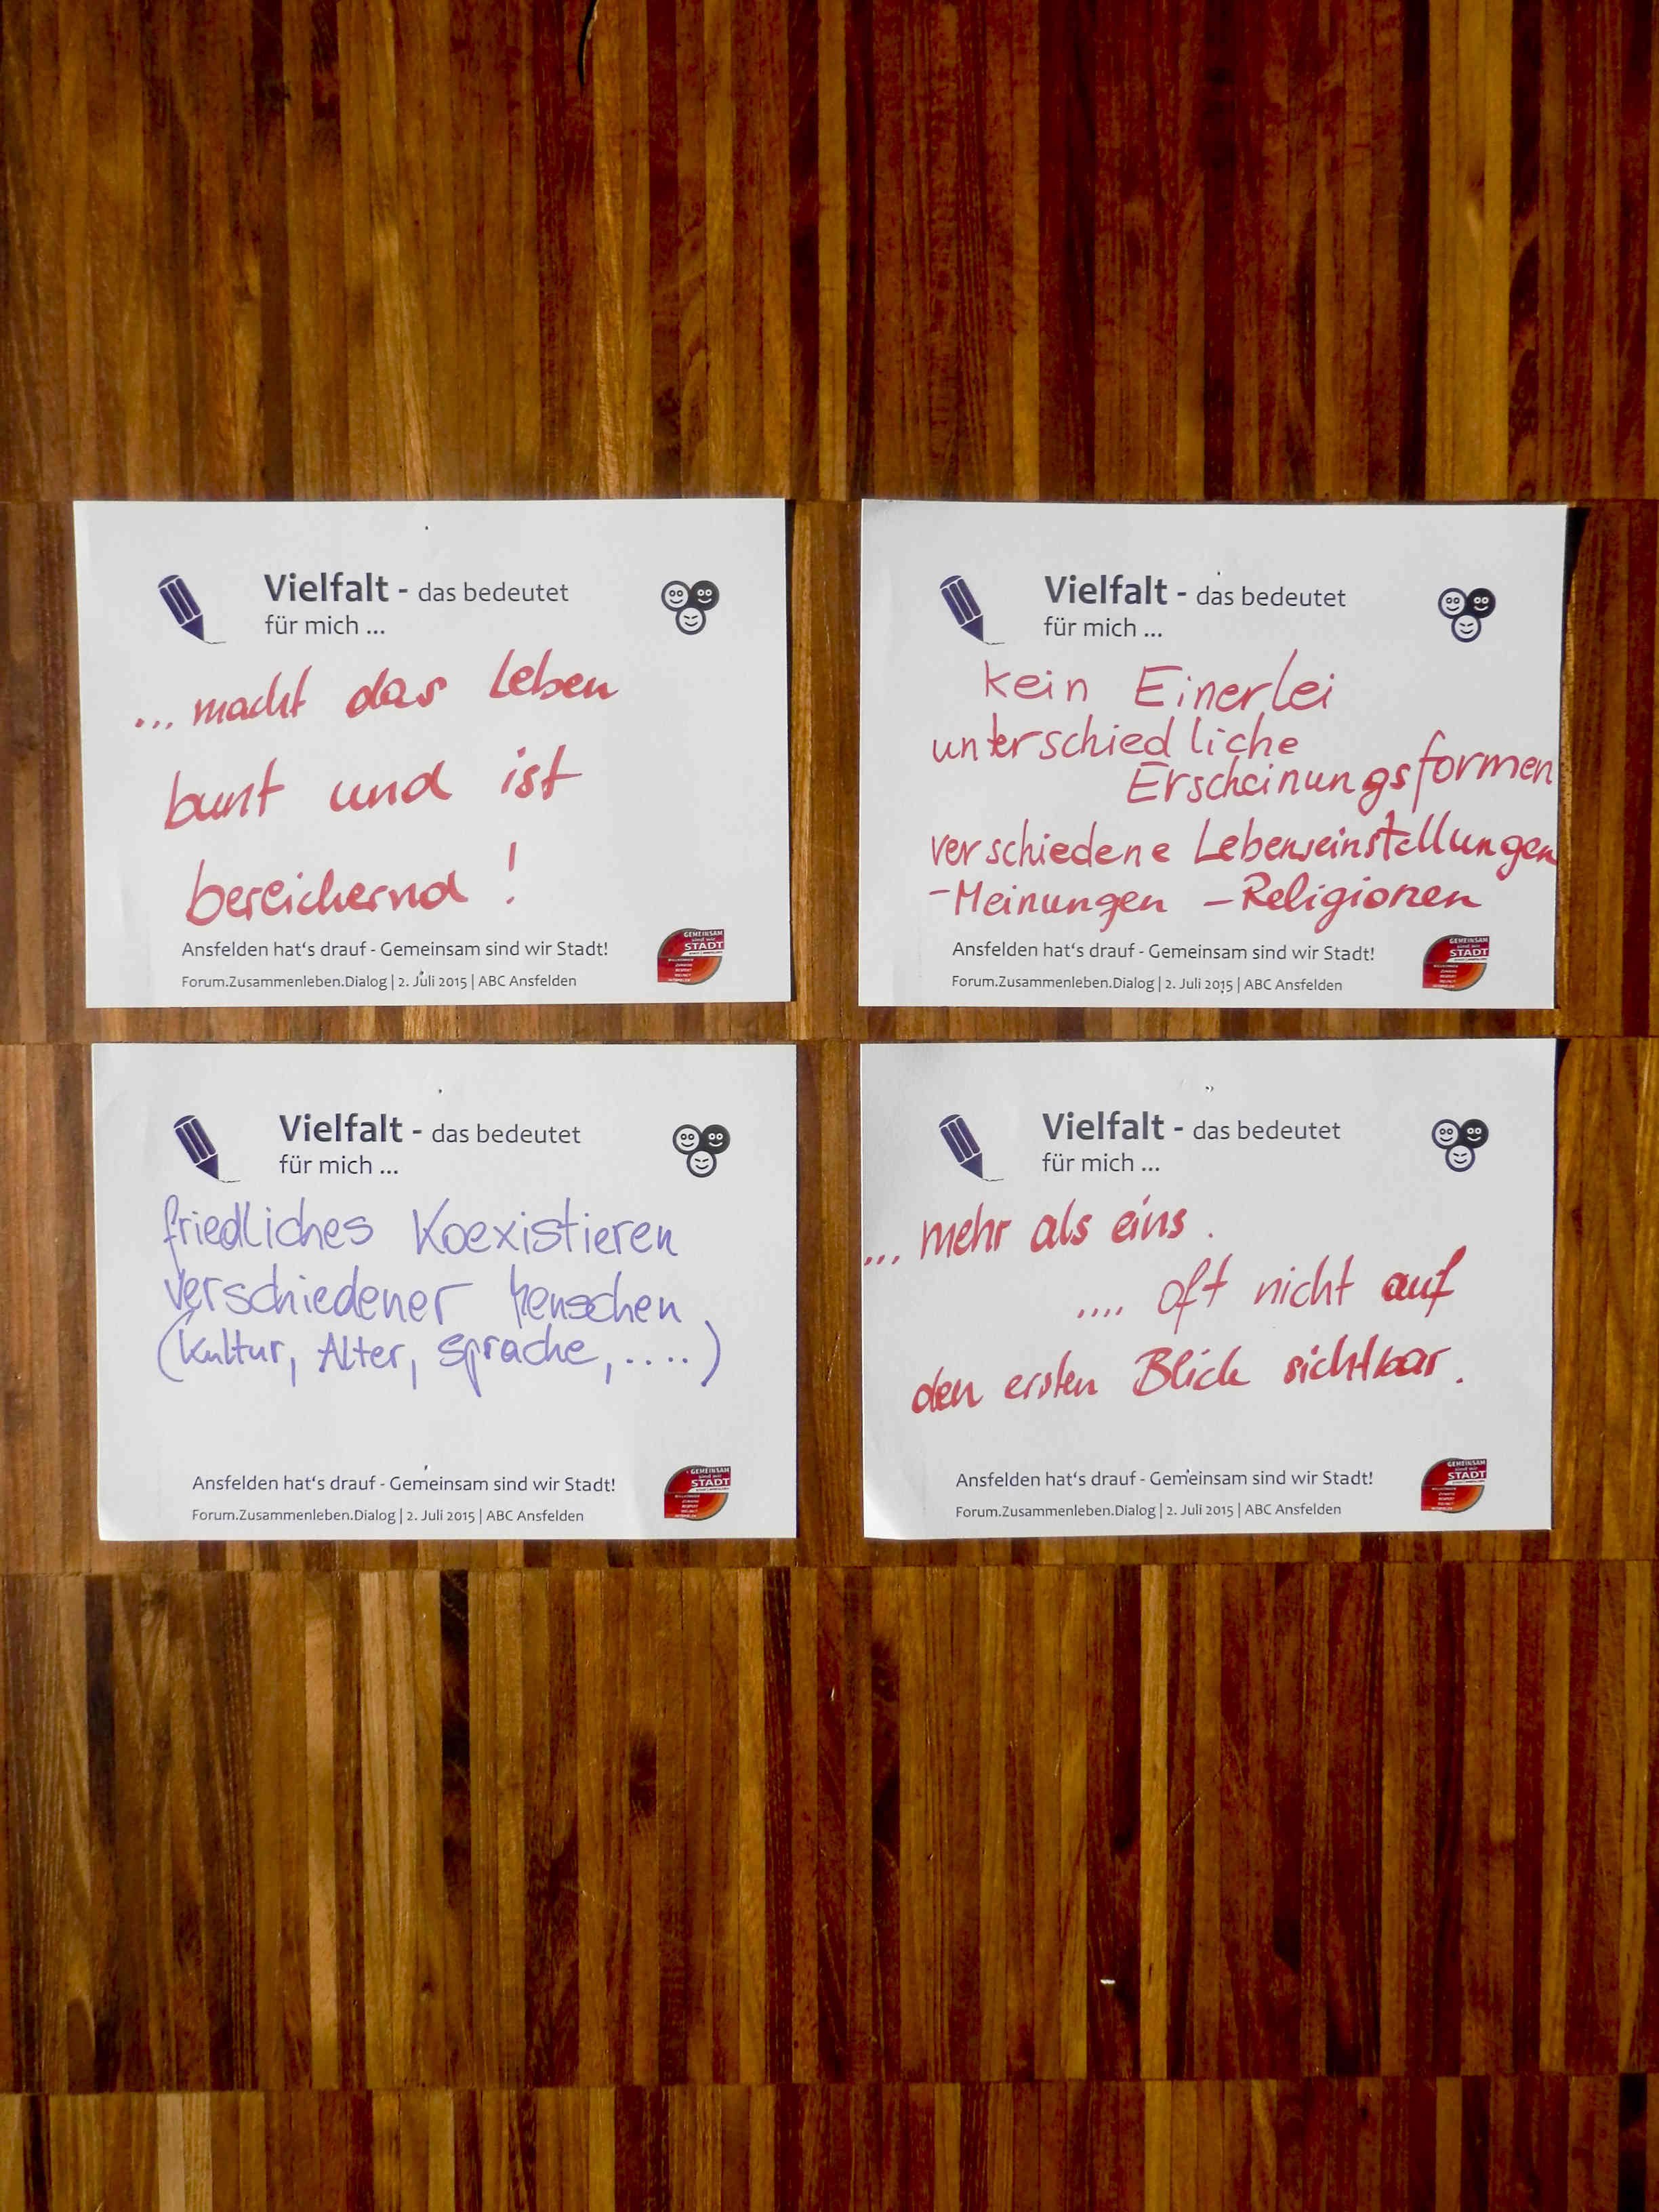 Vielfalt - das bedeutet
für mich ...
... macht das Leben
bunt und ist
bereichernd !
Ansfelden hat's drauf - Gemeinsam sind wir Stadt!
Forum.Zusammenleben.Dialog | 2. Juli 2015 | ABC Ansfelden
GEMEINSAM
sind wir
STADT
Vielfalt - das bedeutet
für mich ...
kein Einerlei
unterschiedliche
Erscheinungsformen
verschiedene Lebenseinstellungen
-Meinungen -Religionen
Ansfelden hat's drauf - Gemeinsam sind wir Stadt!
Forum.Zusammenleben.Dialog | 2. Juli 2015 | ABC Ansfelden
GEMEINSAM
sind wir
STADT
Vielfalt - das bedeutet
für mich ...
friedliches Koexistieren
verschiedener Menschen
(Kultur, Alter, Sprache, ....)
Ansfelden hat's drauf - Gemeinsam sind wir Stadt!
Forum.Zusammenleben.Dialog | 2. Juli 2015 | ABC Ansfelden
GEMEINSAM
sind wir
STADT
Vielfalt - das bedeutet
für mich ...
... mehr als eins .
.... oft nicht auf
den ersten Blick sichtbar .
Ansfelden hat's drauf - Gemeinsam sind wir Stadt!
Forum.Zusammenleben.Dialog | 2. Juli 2015 | ABC Ansfelden
GEMEINSAM
sind wir
STADT